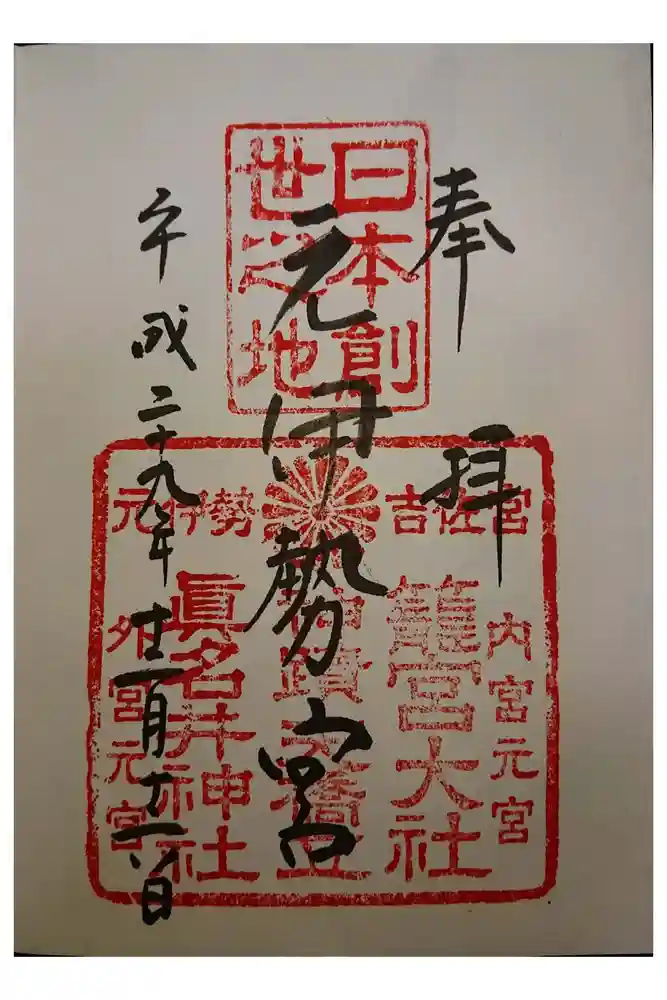 奉拝
日本創
世之地
元伊勢宮
吉佐宮
元伊勢
内宮元宮
籠宮大社
神蹟天橋立
眞名井神社
外宮元宮
平成二十九年十一月日